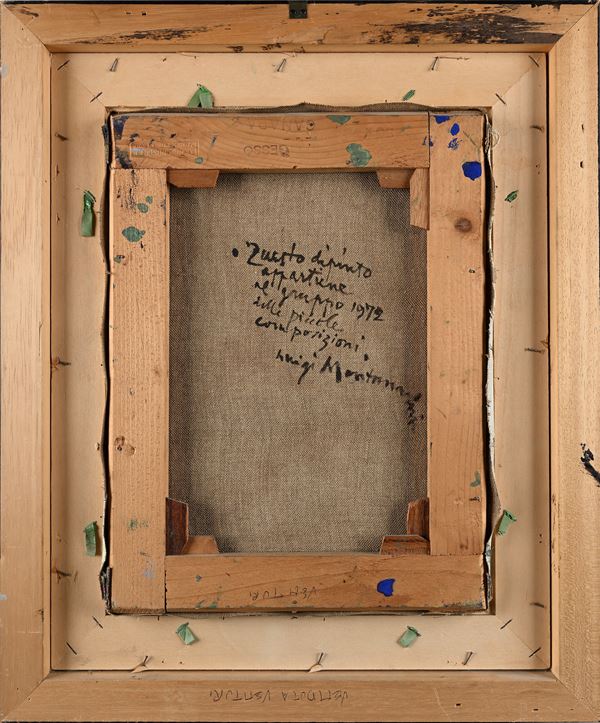 GESSO
• Questo dipinto
appartiene
al gruppo 1972
delle piccole
composizioni.
Luigi Montanarini
VENTURI
VENDUTA VENTURI